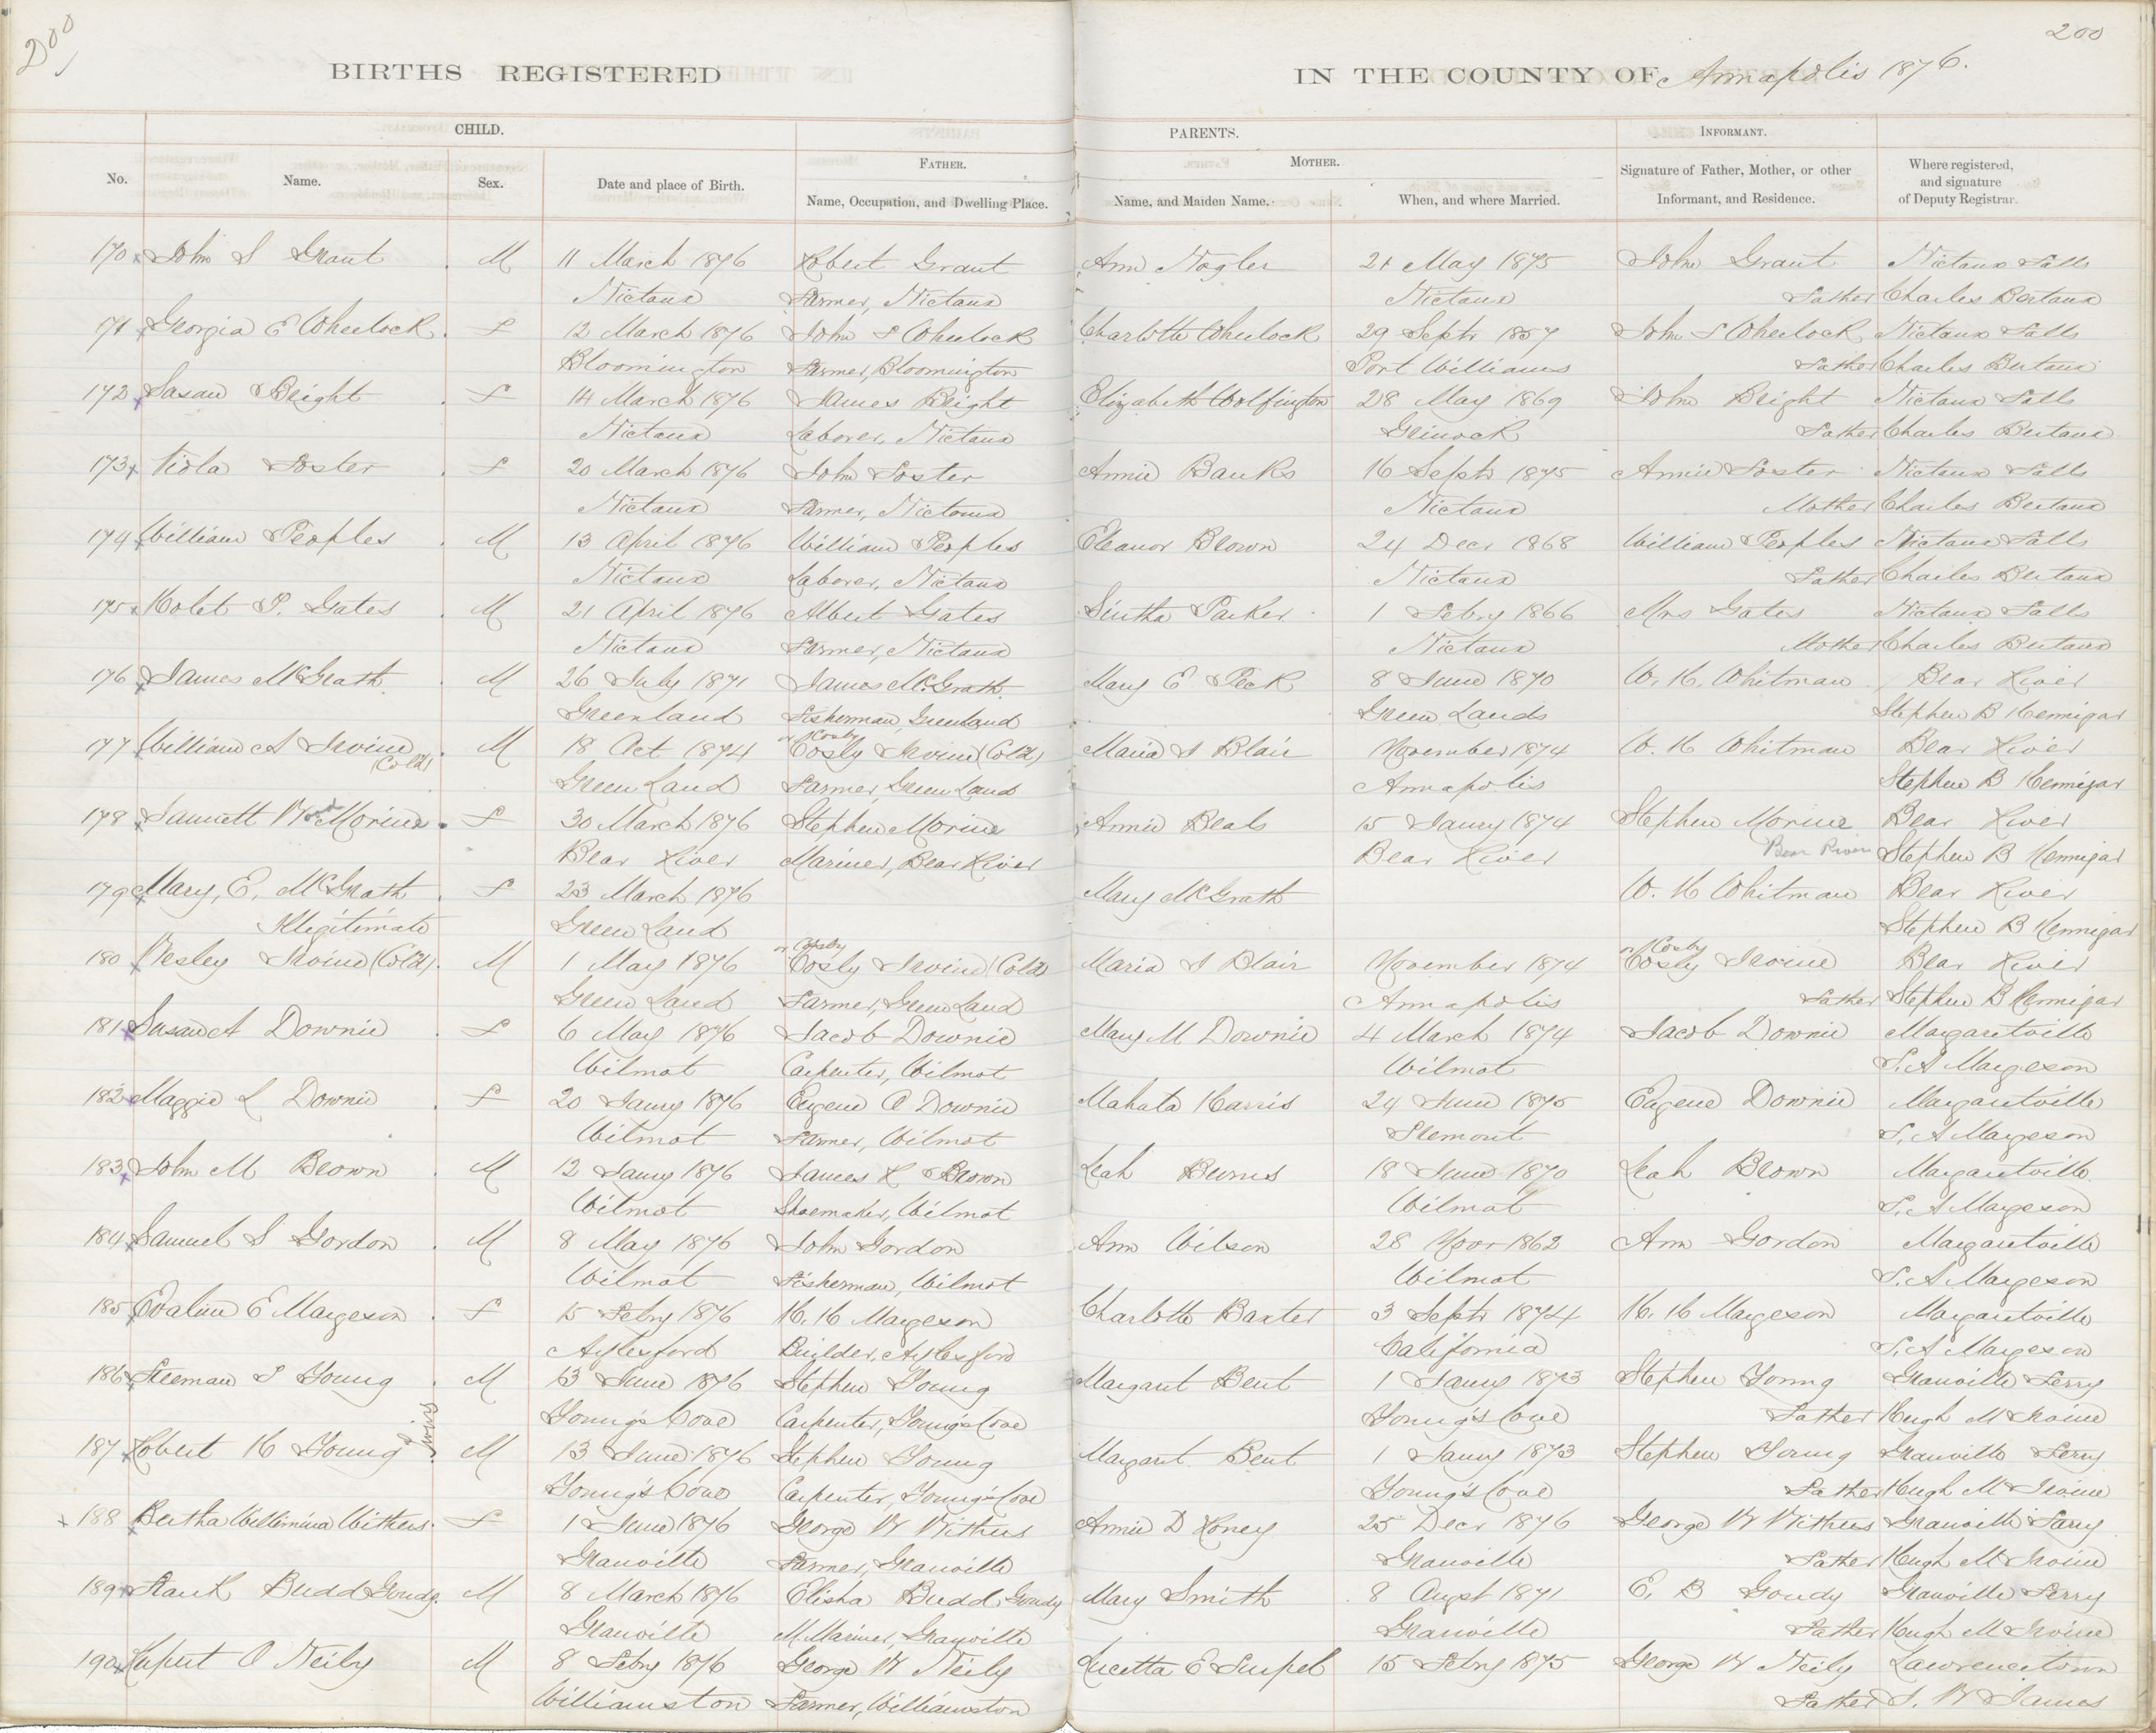 200
200
BIRTHS REGISTERED IN THE COUNTY OF Annapolis 1876.
CHILD. PARENTS. INFORMANT.
FATHER. MOTHER.
No. Name. Sex. Date and place of Birth. Name, Occupation, and Dwelling Place. Name, and Maiden Name. When, and where Married. Signature of Father, Mother, or other Informant, and Residence. Where registered, and signature of Deputy Registrar.
170 x John S Grant . M 11 March 1876 Robert Grant Ann Nogler 21 May 1875 John Grant Nictaux Falls
Nictaux Farmer, Nictaux Nictaux Father Charles Bertaux
171 x Georgia E Wheelock . F 12 March 1876 John S Wheelock Charlotte Wheelock 29 Septr 1857 John S Wheelock Nictaux Falls
Bloomington Farmer, Bloomington Port Williams Father Charles Bertaux
172 x Susan Bright . F 14 March 1876 James Bright Elizabeth Wolfington 28 May 1869 John Bright Nictaux Falls
Nictaux Laborer, Nictaux Grinock Father Charles Bertaux
173 x Viola Foster . F 20 March 1876 John Foster Annie Banks 16 Septr 1875 Annie Foster Nictaux Falls
Nictaux Farmer, Nictaux Nictaux Mother Charles Bertaux
174 x William Peoples . M 13 April 1876 William Peoples Eleanor Brown 24 Decr 1868 William Peoples Nictaux Falls
Nictaux Laborer, Nictaux Nictaux Father Charles Bertaux
175 x Holet P. Gates . M 21 April 1876 Albert Gates Sintha Parker 1 Febry 1866 Mrs Gates Nictaux Falls
Nictaux Farmer, Nictaux Nictaux Mother Charles Bertaux
176 x James McGrath . M 26 July 1871 James McGrath Mary E Peck 8 June 1870 W. H. Whitman Bear River
Greenland Fisherman, Greenland Green Lands Stephen B Hennigar
177 x William A Irvine . M 18 Oct 1874 or Cosby Cosly Irvine (Cold) Maria I Blair November 1874 W. H Whitman Bear River
(Cold) Green Land Farmer, Green Land Annapolis Stephen B Hennigar
178 x Jannett W Morine . F 30 March 1876 Stephen Morine Annie Beals 15 Jany 1874 Stephen Morine Bear River
Bear River Mariner, Bear River Bear River Bear River Stephen B Hennigar
179 x Mary, E. McGrath . F 23 March 1876 Mary McGrath W. H Whitman Bear River
Illegitimate Green Land Stephen B Hennigar
180 x Wesley Irvine (Cold) . M 1 May 1876 or Cosby Cosly Irvine (Cold) Maria I Blair November 1874 or Cosby Cosly Irvine Bear River
Green Land Farmer, Green Land Annapolis Father Stephen B Hennigar
181 x Susan A Downie . F 6 May 1876 Jacob Downie Mary M Downie 4 March 1874 Jacob Downie Margaretville
Wilmot Carpenter, Wilmot Wilmot S. A Margeson
182 x Maggie L Downie . F 20 Jany 1876 Eugene O Downie Mahata Harris 24 June 1875 Eugene Downie Margaretville
Wilmot Farmer, Wilmot Fremont S. A Margeson
183 x John M Brown . M 12 Jany 1876 James R Brown Leah Burns 18 June 1870 Leah Brown Margaretville
Wilmot Shoemaker, Wilmot Wilmot S. A Margeson
184 x Samuel S Gordon . M 8 May 1876 John Gordon Ann Wilson 28 Novr 1862 Ann Gordon Margaretville
Wilmot Fisherman, Wilmot Wilmot S. A Margeson
185 x Evaline E Margeson . F 15 Febry 1876 H. H Margeson Charlotte Baxter 3 Septr 1874 H. H Margeson Margaretville
Aylesford Builder, Aylesford California S. A Margeson
186 x Freeman S Young . M 13 June 1876 Stephen Young Margaret Bent 1 Jany 1873 Stephen Young Granville Ferry
Young's Cove Carpenter, Young's Cove Young's Cove Father Hugh McIrvine
Twins
187 x Robert H Young M 13 June 1876 Stephen Young Margaret Bent 1 Jany 1873 Stephen Young Granville Ferry
Young's Cove Carpenter, Young's Cove Young's Cove Father Hugh McIrvine
x 188 x Bertha Willimina Withers . F 1 June 1876 George W Withers Annie D Roney 25 Decr 1876 George W Withers Granville Ferry
Granville Farmer, Granville Granville Father Hugh McIrvine
189 x Frank Budd Goudy. M 8 March 1876 Elisha Budd Goudy Mary Smith 8 Augst 1871 E. B Goudy Granville Ferry
Granville M. Mariner, Granville Granville Father Hugh McIrvine
190 x Rupert O Neily M 8 Febry 1876 George W Neily Lucetta E 15 Febry 1875 George W Neily Lawrencetown
Williamston Farmer, Williamston Father S. W James